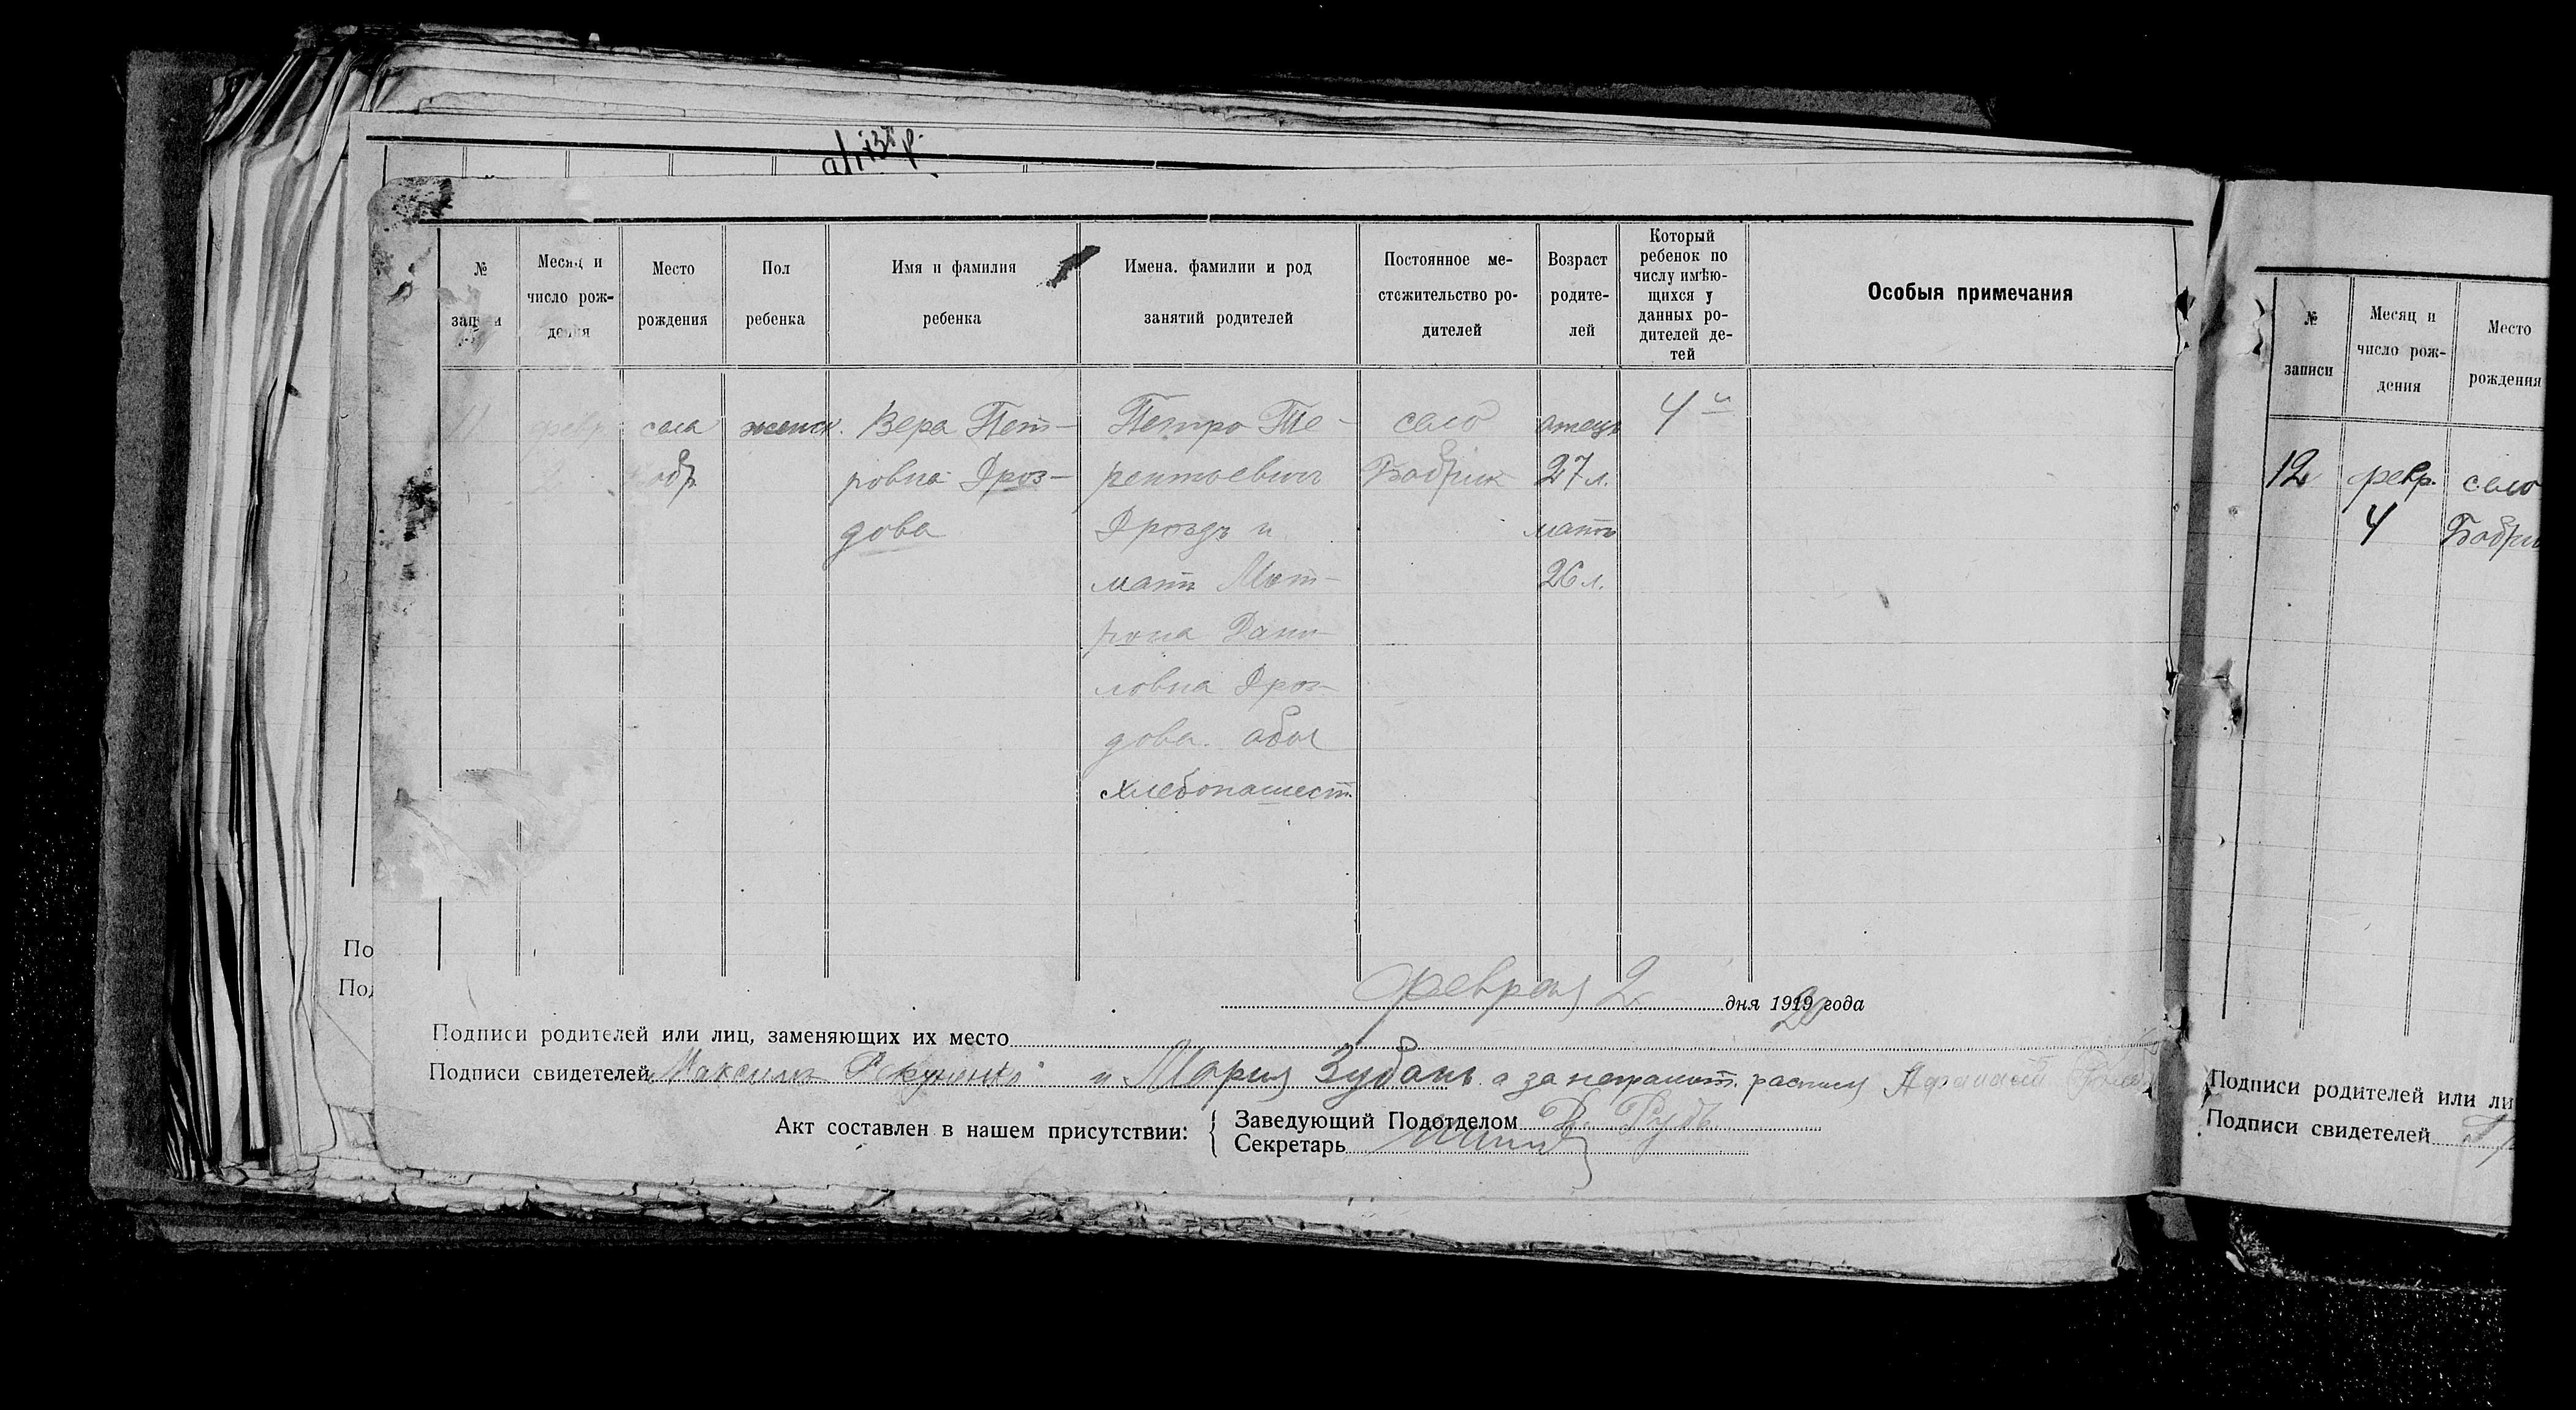 № записи
Месяц и число рождения
Место рождения
Пол ребенка
Имя и фамилия ребенка
Имена. фамилии и род занятий родителей
Постоянное местожительство родителей
Возраст родителей
Который ребенок по числу имѣющихся у данных родителей детей
Особыя примечания
11
февр.
2
села
Бобр.
женск.
Вера Пет-
ровна Дроз-
дова
Петро Те-
рентьевич
Дроздъ и
мать Мот-
рона Дани-
ловна Дроз-
дова. обое
хлебопашест.
село
Бобрик
отецъ
27 л.
мать
26 л.
4й
февраля 2 дня 1919 20 года
Подписи родителей или лиц, заменяющих их место
Подписи свидетелей Максимъ и Мария Зубань а за неграмот. распися Афанасий
Акт составлен в нашем присутствии: { Заведующий Подотделом Рудь
Секретарь
По
Под
№ записи
Месяц и число рождения
Место рождения
12
февр.
4
село
Бобри
Подписи родителей или ли
Подписи свидетелей